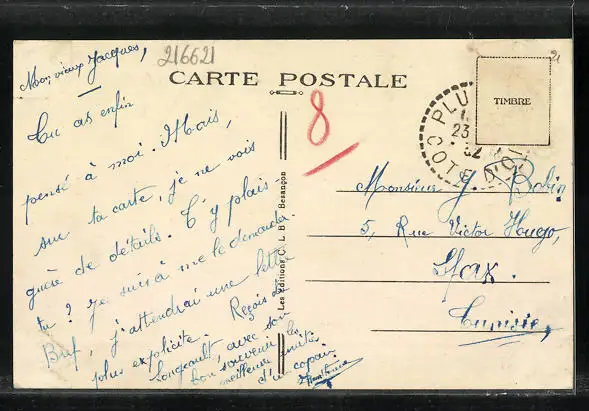 216621
21
CARTE POSTALE
8
TIMBRE
PLU
23
32
COTE D'OR
Mon vieux Jacques,
Tu as enfin
pensé à moi. Mais,
sur ta carte, je ne vois
guère de détails. T'y plais-
tu ? Je suis à me le demander.
Bref, j'attendrai une lettre
plus explicite. Reçois de
Longeault, avec son
bon souvenir, les
meilleures amitiés
d'un copain.
Les éditions C. L. B. Besançon
Monsieur J. Robin
5, Rue Victor Hugo,
Sfax.
Tunisie,